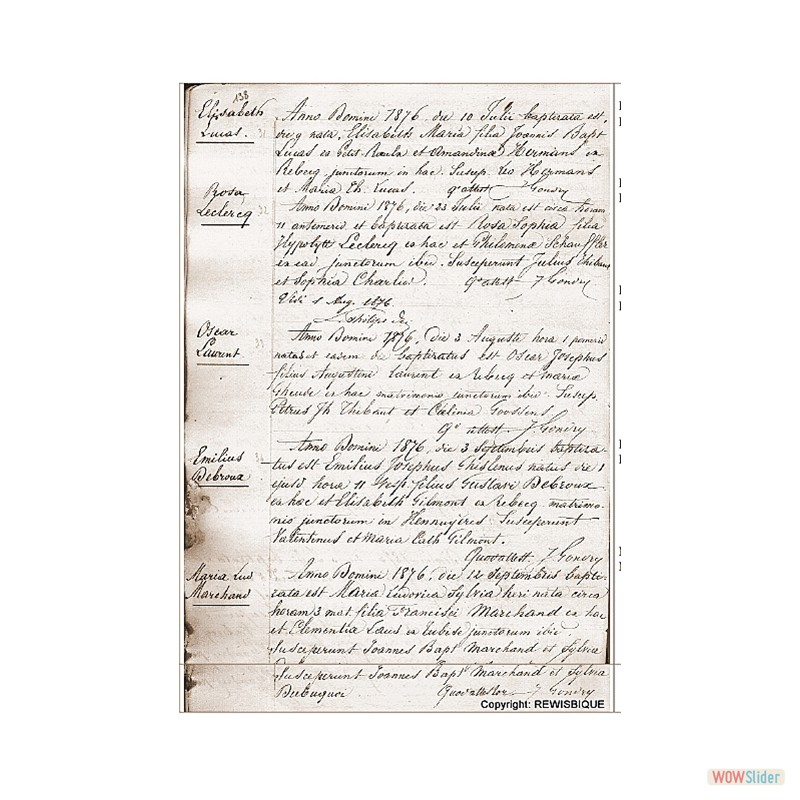 138
Elisabeth
Lucas.
31
Anno Domini 1876 die 10 Julii baptizata est,
nata, Elisabeth Maria filia Joannis Bapt
Lucas ex Petit-Rœulx et Amandinæ Hermans ex
Rebecq junctorum in hac. Suscep. Leo Hermans
et Maria Th. Lucas. qd attest J Gondry
Rosa
Leclercq
32
Anno Domini 1876, die 23 Julii nata est circa horam
11 antemerid et baptizata est Rosa Sophia filia
Hypolyti Leclercq ex hac et Philomenæ
ex ead junctorum ibid. Susceperunt Julius Thibaut
et Sophia Charlier. qd attest J Gondry
Vidi 1 Aug. 1876.
Oscar
Laurent.
33
Anno Domini 1876, die 3 Augusti hora 1 pomerid
natus et eadem die baptizatus est Oscar Josephus
filius Augustini Laurent ex Rebecq et Mariæ
Gheude ex hac matrimonio junctorum ibid. Suscep.
Petrus Jh Thibaut et Goossens
qd attest J Gondry
Emilius
Debroux
34
Anno Domini 1876, die 3 Septembris baptiza-
tus est Emilius Josephus Ghislenus natus die 1
ejusd hora 11 Vesp. filius Gustavi Debroux
ex hac et Elisabeth Gilmont ex Rebecq matrimo-
nio junctorum in Hennuyères Susceperunt
Valentinus et Maria Cath Gilmont.
Quod attest. J Gondry
Maria Lud
Marchand
Anno Domini 1876, die 12 Septembris bapti-
zata est Maria Ludovica Sylvia heri nata circa
horam 3 mat filia Francisci Marchand ex hac
et Clementia Laus ex Tubise junctorum ibid.
Susceperunt Joannes Bapt Marchand et Sylvia
Susceperunt Joannes Bapt Marchand et Sylvia
Quod attestor J Gondry
Copyright: REWISBIQUE
WOWSlider